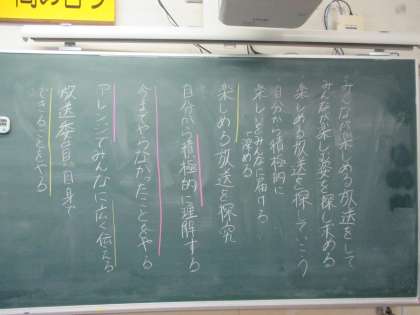 みんなが楽しめる放送をして
みんなが楽しむ姿を探し求める
楽しめる放送を探していこう
自分から積極的に
楽しいをみんなに届ける
深める
楽しめる放送を探究
自分から積極的に理解する
今までやらなかったことをやる
アレンジでみんなに広く伝える
放送委員自身で
できることをやる